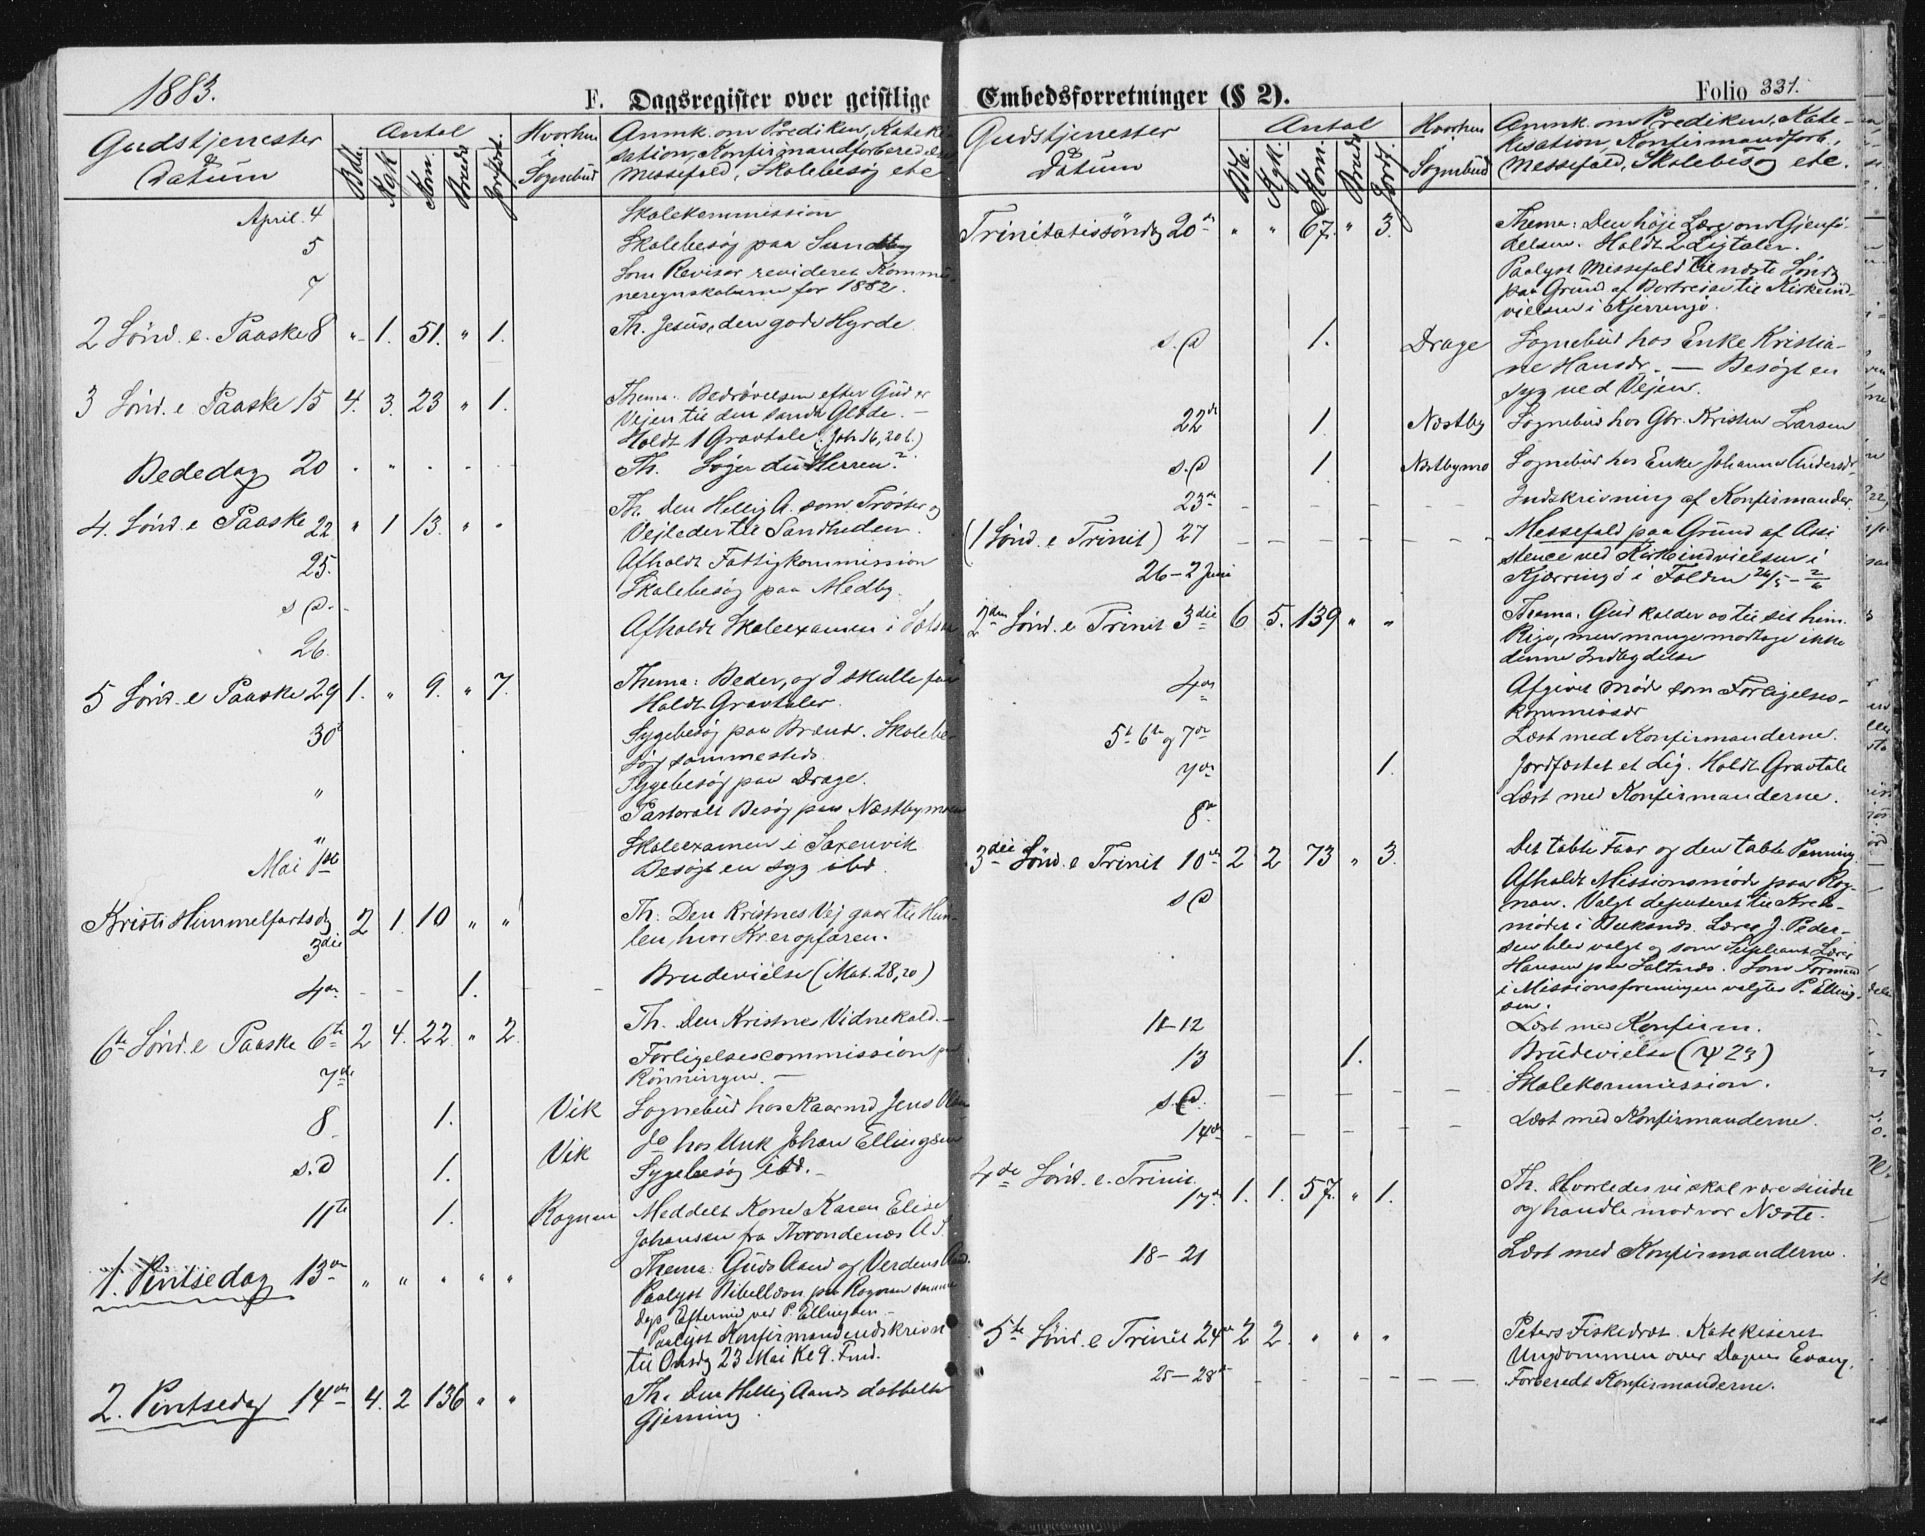 1883.
F. Dagsregister over geistlige
Gudstjenester & Datum
Antal
Bdb. Kgk. Kom. Brudv. Jordf.
Hvorhen i Sognebud
Anmk. om Prediken, Kateki-
sation, Konfirmandforberedelse
Messefald, Skolebesøg etc
April. 4 Skolekommission
5 Skolebesøg paa Sundby
7 Som Revisor revideret Kommu-
neregnskaberne for 1882.
2 Sønd. e. Paaske 8 " 1. 51. " 1. Th. Jesus, den gode Hyrde
3 Sønd. e Paaske 15 4. 3. 23 " 1. Thema. Bedrøvelsen efter Gud er
Vejen til den sande Glæde. —
Holdt 1 Gravtale (Joh 16, 20 b.)
Bededag 20 Th. Søger du Herren?
4. Sønd. e Paaske 22 " 1 13. " " Th. Den Hellig A. som Trøster og
Vejleder til Sandheden.
25. Afholdt Fattigkommission
s. D. Skolebesøg paa Medby.
26. Afholdt Skoleexamen i
5 Sønd. e Paaske 29 1. " 9. " 7. Thema: Beder, og I skulle faa
Holdt Gravtaler.
30 Sygebesøg paa Brænd. Skolebe-
søg sammesteds.
" Sygebesøg paa Drage.
Pastoralt Besøg paa Næstbymoen
" Skoleexamen i Saxenvik
Mai 1ste Besøgt en syg ibd.
Kristi Himmelfartsdg 3die 2 1. 10 " " Th. Den Kristnes Vej gaar til Him-
len, hvor Kr. er opfaren.
4de 1. Brudevielse (Mat. 28, 20)
6te Sønd. e Paaske 6te 2 4. 22. " 2. Th. Den Kristnes Vidnekald. —
7de Forligelsescommission paa
Rønningen. —
8 1. Vik Sognebud hos Kaarmd Jens Olsen
s. D 1. Vik do hos Unk Johan Ellingsen
Sygebesøg ibd. —
11te 1. Rognan Meddelt Kone Karen Elise
Johansen fra Thorondenæs A. S.
1. Pintsedag 13de " " " " " Thema: Guds Aand og Verdens Aand.
Paalyst Bibellæsn. paa Rognan samme
Dags Efterm. ved P. Ellingsen. —
Paalyst Konfirmandindskrivn
til Onsdg 23 Mai Kl 9. Fmd.
2. Pintsedag 14de 4. 2 136 " " Th. Den Hellig Aands dobbelte
Gjerning.
Embedsforretninger (§ 2).
Folio 331.
Gudstjenester & Datum
Antal
Bdb. Kgk. Kom. Brudv. Jordf.
Hvorhen i Sognebud
Anmk. om Prediken, Kate-
kisation, Konfirmandforb.,
Messefald, Skolebesøg etc.
Trinitatissøndg 20de " " 67. " 3. Thema: Den høje Lære om Gjenfø-
delsen. Holdt 2 Ligtaler.
Paalyst Messefald til næste Søndg
paa Grund af Bortreise til Kirkeind-
vielsen i Kjerringø.
s. D 1. Drage Sognebud hos Enke Kristia-
ne Hansdr. — Besøgt en
syg ved Vejen.
22de 1. Næstby Sognebud hos Gbr. Kristen Larsen
s. D 1. Næstbymo Sognebud hos Enke Johanna Andersdr
23de Indskrivning af Konfirmander
(1 Sønd. e Trinit) 27 Messefald paa Grund af Assi
stence ved Kirkeindvielsen i
26 - 2 Juni Kjærringø i Folden 26/5 - 2/6
2den Sønd. e Trinit 3die 6 5. 139 " " Thema. Gud kalder os til sit him.
Rige, men mange modtage ikke
denne Indbydelse
4de Afgivet Møde som Forligelses-
kommissær
5te 6te og 7de Læst med Konfirmanderne.
7de 1. Jordfæstet et Lig. Holdt Gravtale
8de Læst med Konfirmanderne.
3die Sønd. e Trinit 10de 2 2 73 " 3. Det tabte Faar og den tabte Penning
s. D Afholdt Missionsmøde paa Rog-
nan. Valgt deputeret til Kreds-
mødet i Buksnæs. Lærer J. Peder-
sen blev valgt og som Supleant Lærer
Hansen paa Saltnæs. Som Formand
i Missionsforeningen valgtes P. Elling-
sen.
11-12 Læst med Konfirm.
13 1. Brudevielse (ψ 23)
s. D. Skolekommission.
14de Læst med Konfirmanderne.
4de Sønd. e. Trinit.
17de 1. 1. 57. " 1. Th. Hvorledes vi skal være sindre
og handle mod vor Næste.
18-21 Læst med Konfirmanderne.
5te Sønd. e Trinit 24de 2 2. " " " Peters Fiskedræt. Katekiseret
Ungdommen over Dagens Evang.
25-28de Forberedt Konfirmanderne.